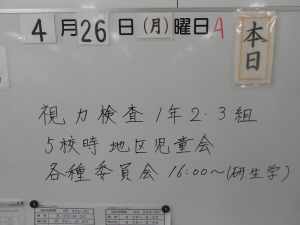 4月26日(月)曜日A
本日
視力検査 1年2・3組
5校時 地区児童会
各種委員会 16:00~(研生学)